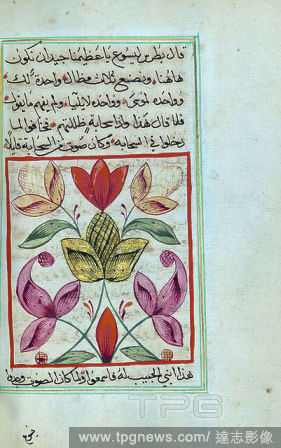 قال بطرس ليسوع يا عظيمنا جيدان نكون
هاهنا ونصنع ثلاث مظال واحدة لك
وواحدة لموسى وواحدة لايليا ولم يفهم ما يقول
فلما قال هذا واذا سحابة ظللتهم فخافوا لما
دخلوا في السحابة وكان صوت من السحابة قايلا
هذا ابني الحبيب له فاسمعوا ولما كان الصوت وجد
TPG
www.tpgnews.com / 達志影像